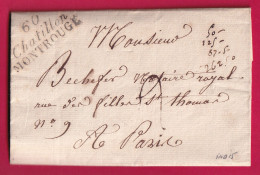 60
Chatillon
MONTROUGE
Monsieur
50-
125-
87-5-
262.50
Bechefer Notaire royal
rue des filles St thomas
No 9
A Paris